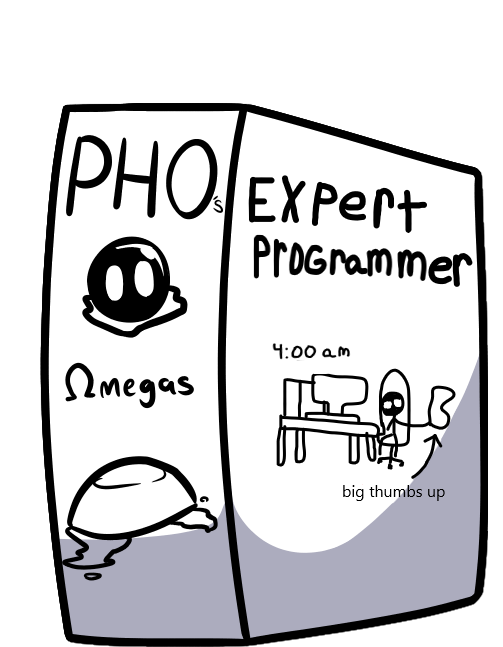 PHO's
Ωmegas
Expert
Programmer
4:00 am
big thumbs up